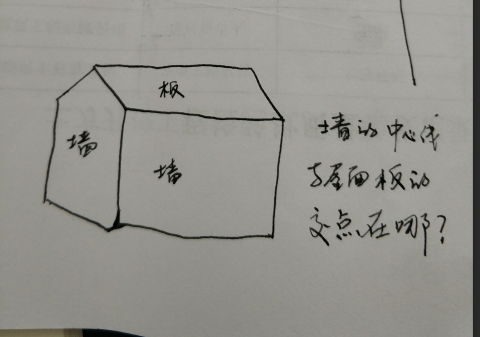 板
墙
墙
墙的中心线
与屋面板的
交点在哪？